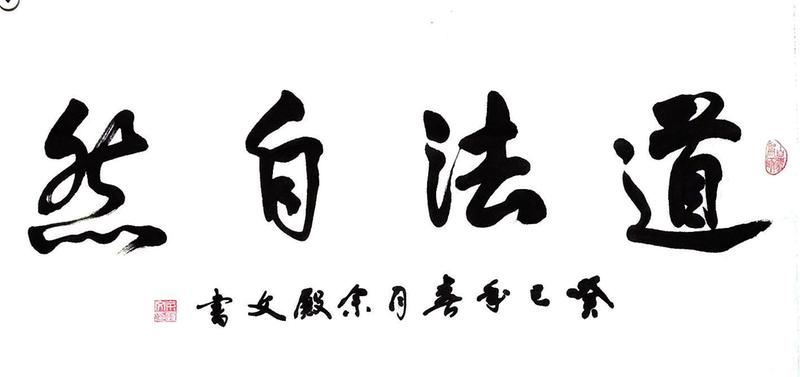 道法自然
癸巳年春月余殿文書